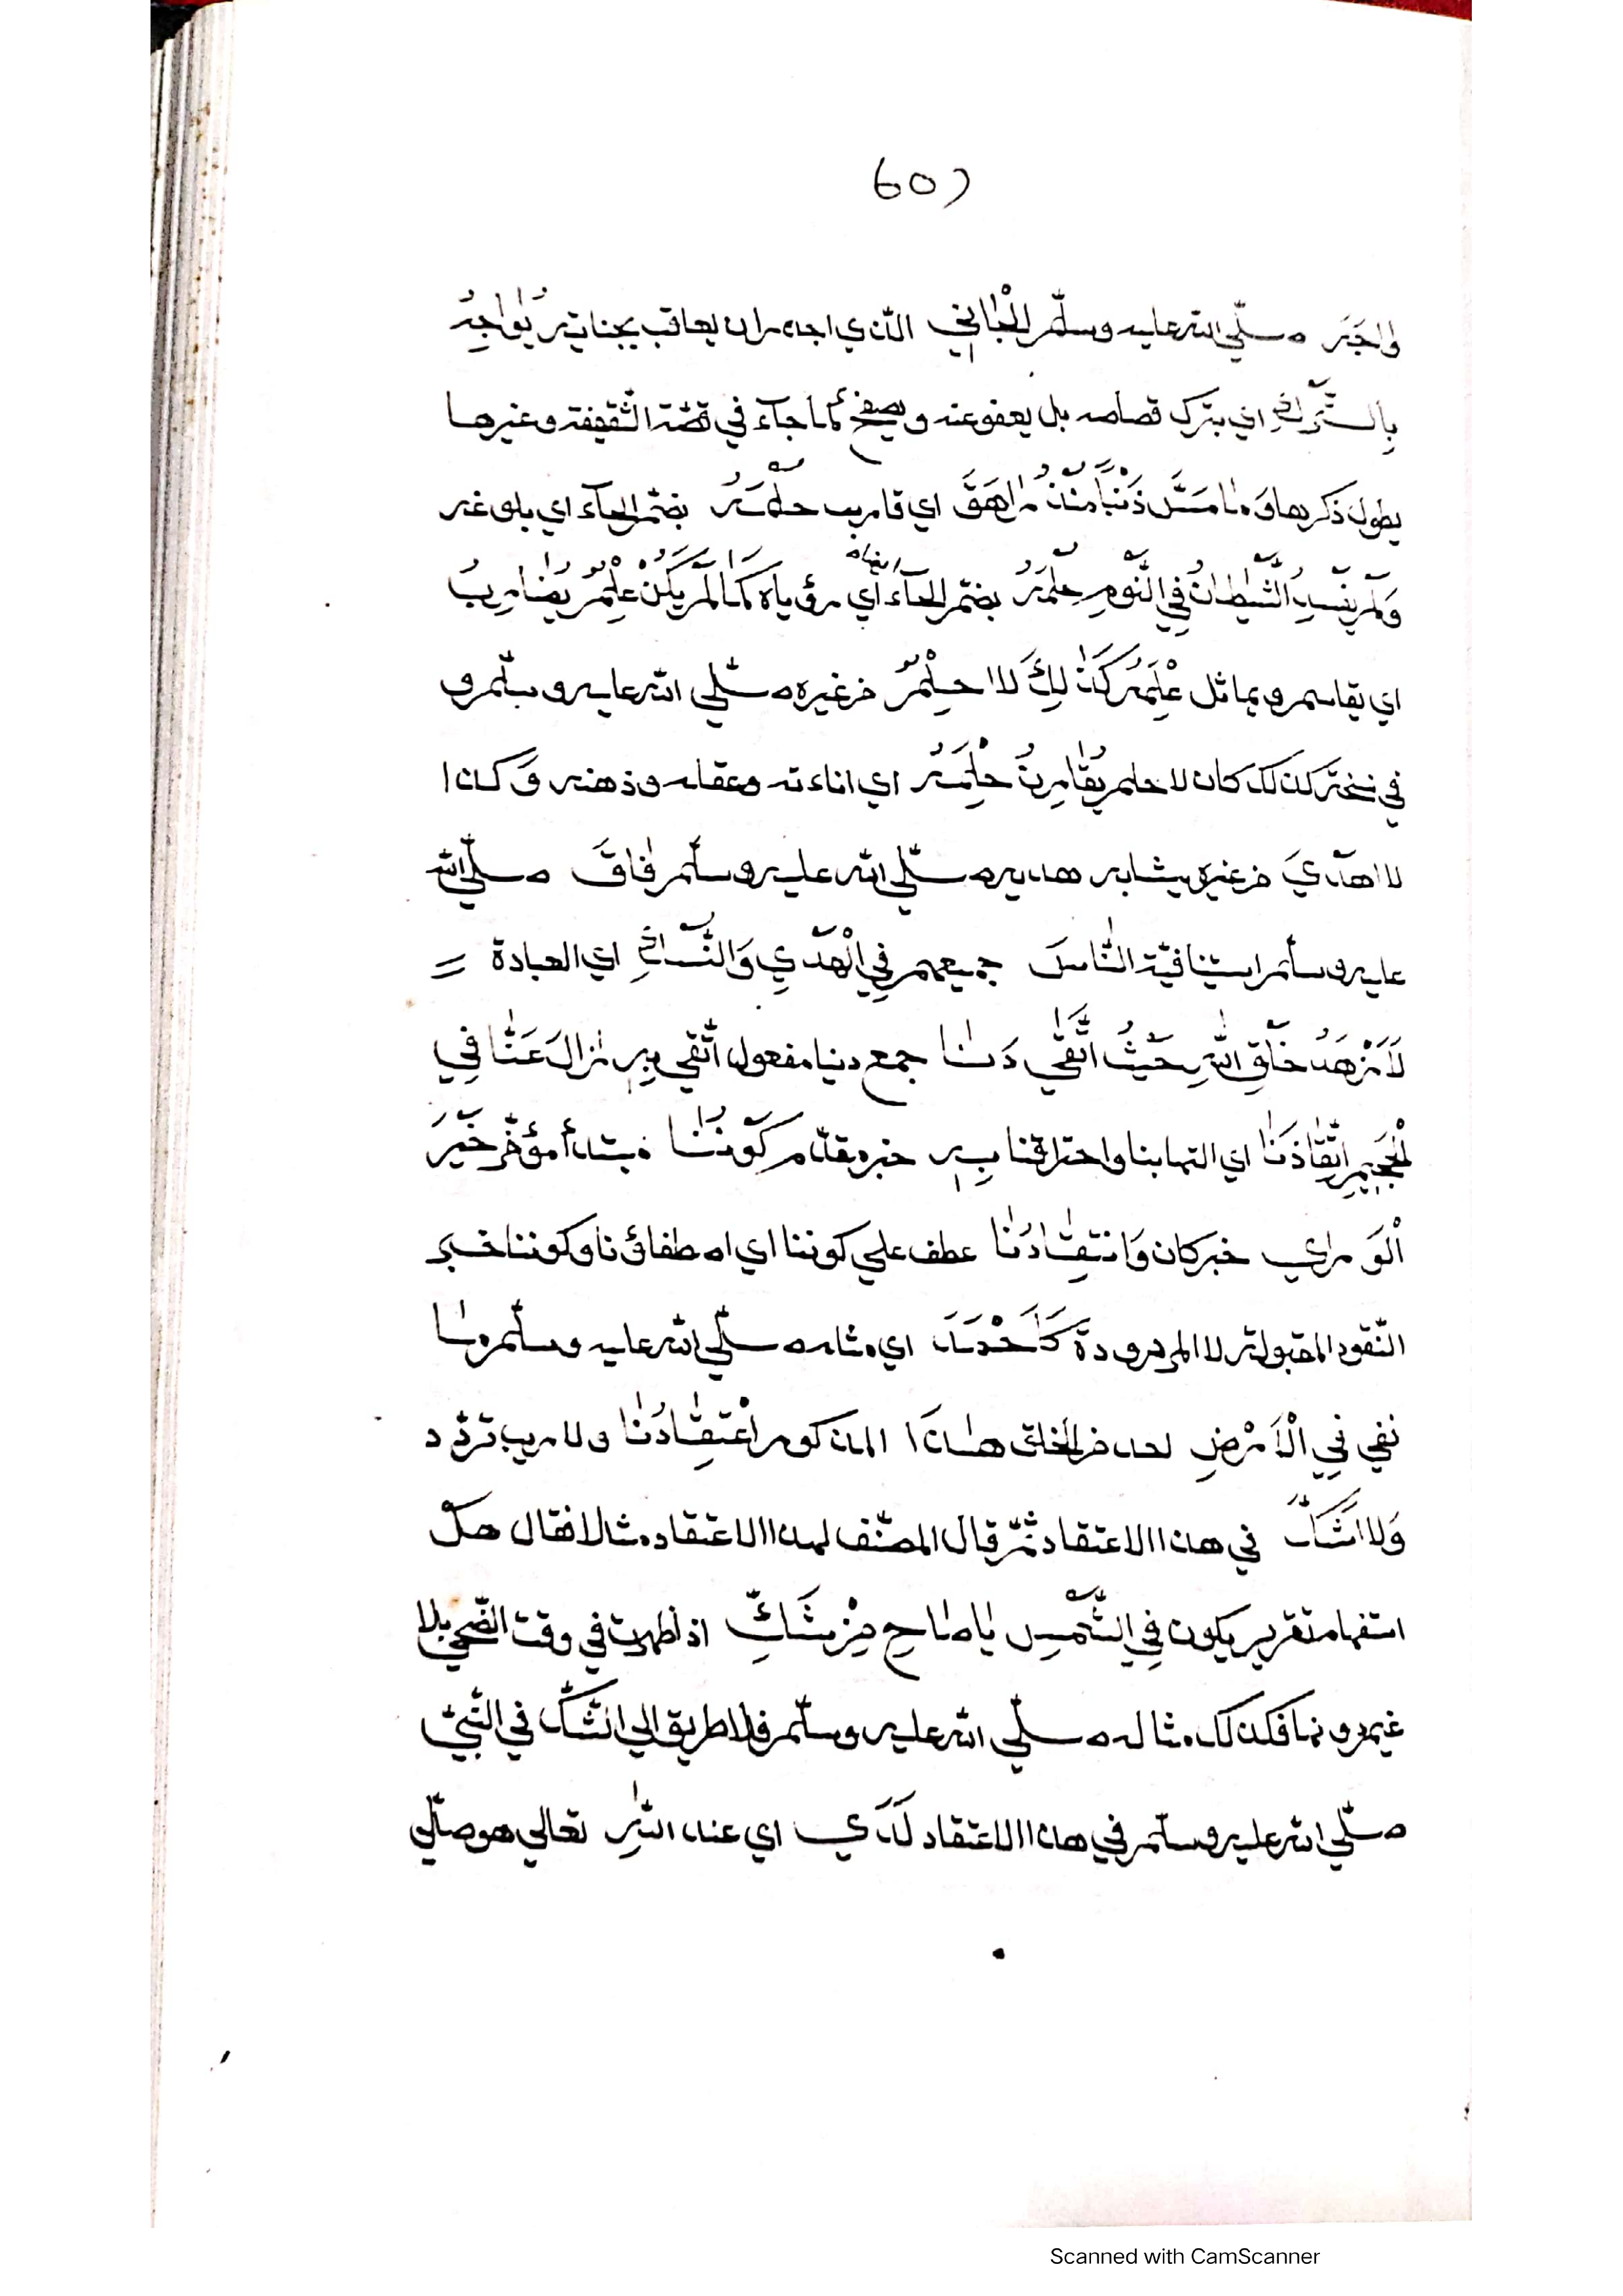 60
واجبر صلّى الله عليه وسلّم للجاني الذي اجدر ان يعاقب بجنايته يواجه
بالترك اي بترك قصاصه بل يعفو عنه ويصفح كما جآء في قصّة الثّقيفة وغيرها
يطول ذكرها وما مسّ ذنبا منذ راهق اي قارب حلمه بضمّ الحآء اي بلوغه
ولم يفسد الشّيطان في النّوم حلمه بضمّ الحآء ايضا اي رؤياه كما لم يكن علم يضارب
اي يقاسم ويماثل علمه كذلك لا حلم من غيره صلّى الله عليه وسلّم و
في نسخة كذلك كان لا حلم يقارن حلمه اي اناءته وعقله وذهنه وكان ا
لا هدي من غيره يشابه هديه صلّى الله عليه وسلّم فاق صلّى الله
عليه وسلّم استينافيّة النّاس جميعهم في الهدي والنّسك اي العبادة =
لأزهد خلق الله حيث اتّقى دنا جمع دنيا مفعول اتّقى به زال عنّا في
الجحيم اتّقادنا اي التهابنا واحتراقنا به خبر مقدّم كوننا مبتدأ مؤخّر خير
الورى خبر كان وانتقادنا عطف على كوننا اي اصطفاؤنا وكوننا خير
النّقود المقبولة لا المردودة كأحمد اي مثله صلّى الله عليه وسلّم وما
نفي في الأرض احد من الخلق هذا المذكور اعتقادنا ولا ريب تردّد
ولا شكّ في هذا الاعتقاد ثمّ قال المصنّف لهذا الاعتقاد مثالا فقال هل
استفهام تقرير يكون في الشّمس يا صاح من شكّ اذ ظهرت في وقت الضّحى بلا
غيم دونها فكذلك مثاله صلّى الله عليه وسلّم فلا طريق الى الشّكّ في النّبيّ
صلّى الله عليه وسلّم في هذا الاعتقاد لدى اي عند الله تعالى هو صلّى
Scanned with CamScanner